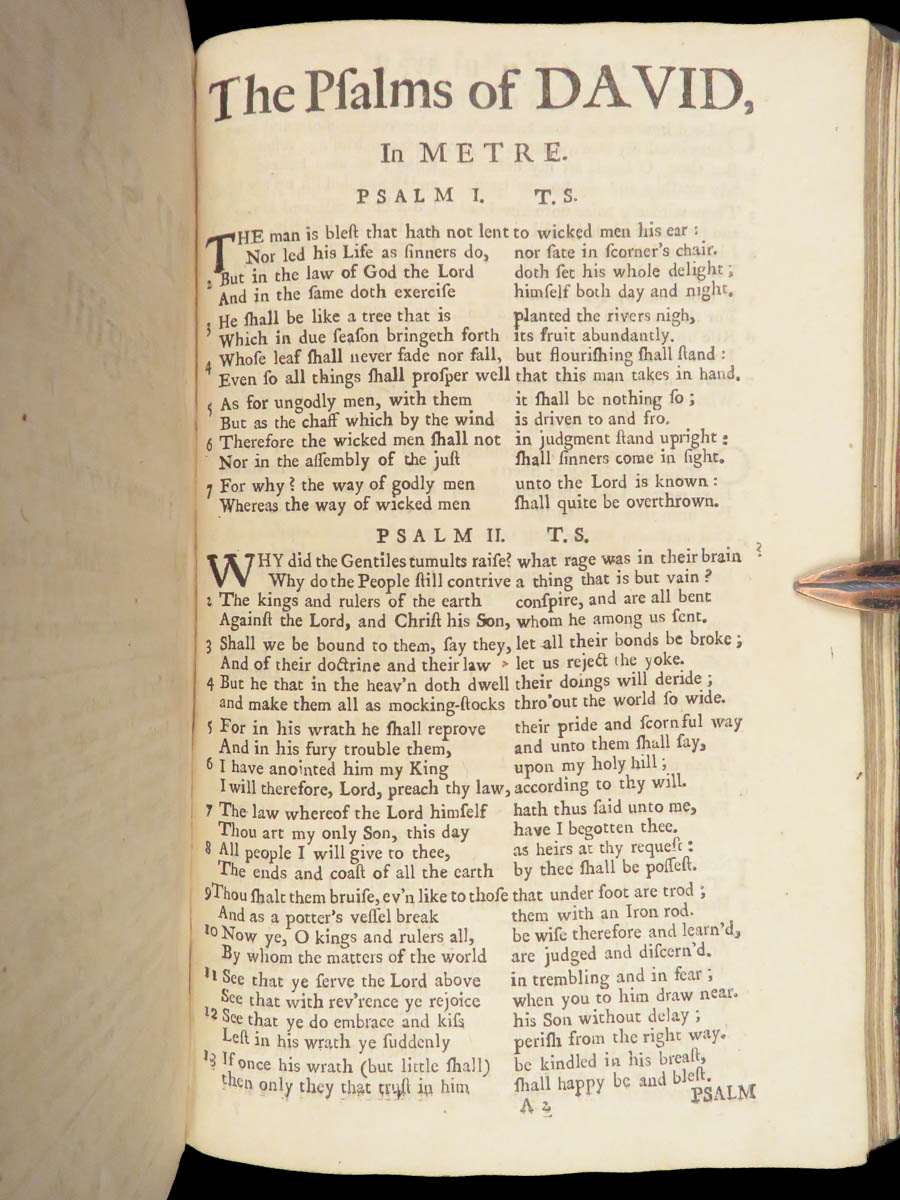 The Pſalms of DAVID,
In METRE.
PSALM I. T. S.
THE man is bleſt that hath not lent to wicked men his ear :
Nor led his Life as ſinners do, nor ſate in ſcorner's chair.
2 But in the law of God the Lord doth ſet his whole delight ;
And in the ſame doth exerciſe himſelf both day and night.
3 He ſhall be like a tree that is planted the rivers nigh,
Which in due ſeaſon bringeth forth its fruit abundantly.
4 Whoſe leaf ſhall never fade nor fall, but flouriſhing ſhall ſtand :
Even ſo all things ſhall proſper well that this man takes in hand.
5 As for ungodly men, with them it ſhall be nothing ſo ;
But as the chaff which by the wind is driven to and fro.
6 Therefore the wicked men ſhall not in judgment ſtand upright :
Nor in the aſſembly of the juſt ſhall ſinners come in ſight.
7 For why ? the way of godly men unto the Lord is known :
Whereas the way of wicked men ſhall quite be overthrown.
PSALM II. T. S.
WHY did the Gentiles tumults raiſe? what rage was in their brain ?
Why do the People ſtill contrive a thing that is but vain ?
2 The kings and rulers of the earth conſpire, and are all bent
Againſt the Lord, and Chriſt his Son, whom he among us ſent.
3 Shall we be bound to them, ſay they, let all their bonds be broke ;
And of their doctrine and their law let us reject the yoke.
4 But he that in the heav'n doth dwell their doings will deride ;
and make them all as mocking-ſtocks thro'out the world ſo wide.
5 For in his wrath he ſhall reprove their pride and ſcornful way
And in his fury trouble them, and unto them ſhall ſay,
6 I have anointed him my King upon my holy hill ;
I will therefore, Lord, preach thy law, according to thy will.
7 The law whereof the Lord himſelf hath thus ſaid unto me,
Thou art my only Son, this day have I begotten thee.
8 All people I will give to thee, as heirs at thy requeſt :
The ends and coaſt of all the earth by thee ſhall be poſſeſt.
9 Thou ſhalt them bruiſe, ev'n like to thoſe that under foot are trod ;
And as a potter's veſſel break them with an Iron rod.
10 Now ye, O kings and rulers all, be wiſe therefore and learn'd,
By whom the matters of the world are judged and diſcern'd.
11 See that ye ſerve the Lord above in trembling and in fear ;
See that with rev'rence ye rejoice when you to him draw near.
12 See that ye do embrace and kiſs his Son without delay ;
Leſt in his wrath ye ſuddenly periſh from the right way.
13 If once his wrath (but little ſhall) be kindled in his breaſt,
then only they that truſt in him ſhall happy be and bleſt.
A 2 PSALM